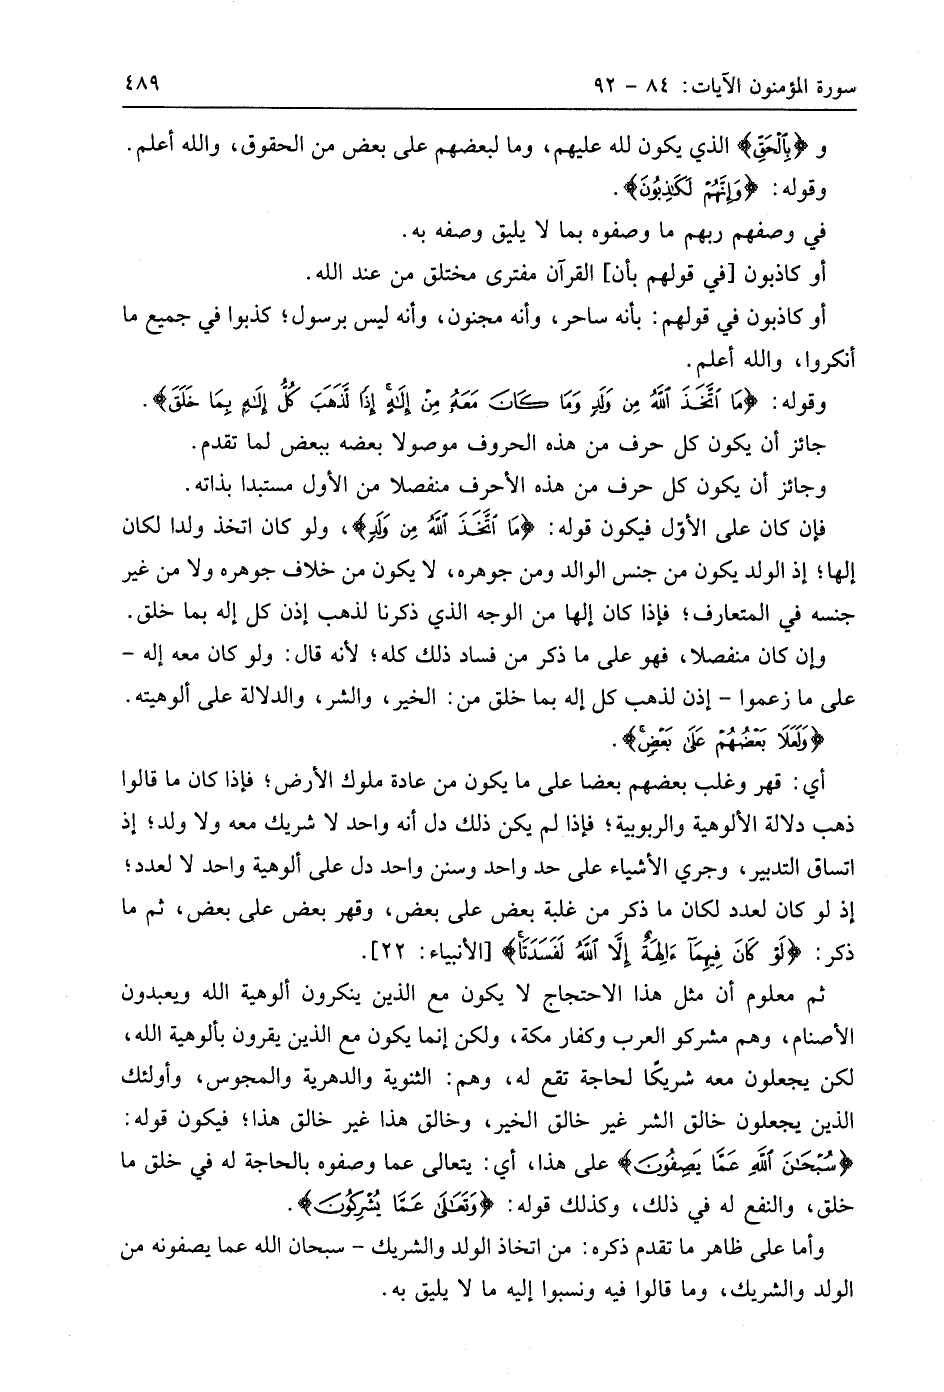 سورة المؤمنون الآيات: ٨٤ - ٩٢ ٤٨٩
و ﴿بِٱلْحَقِّ﴾ الذي يكون لله عليهم، وما لبعضهم على بعض من الحقوق، والله أعلم.
وقوله: ﴿وَإِنَّهُمْ لَكَٰذِبُونَ﴾.
في وصفهم ربهم ما وصفوه بما لا يليق وصفه به.
أو كاذبون [في قولهم بأن] القرآن مفترى مختلق من عند الله.
أو كاذبون في قولهم: بأنه ساحر، وأنه مجنون، وأنه ليس برسول؛ كذبوا في جميع ما
أنكروا، والله أعلم.
وقوله: ﴿مَا ٱتَّخَذَ ٱللَّهُ مِن وَلَدٍ وَمَا كَانَ مَعَهُۥ مِنْ إِلَٰهٍۚ إِذًا لَّذَهَبَ كُلُّ إِلَٰهٍۭ بِمَا خَلَقَ﴾.
جائز أن يكون كل حرف من هذه الحروف موصولا بعضه ببعض لما تقدم.
وجائز أن يكون كل حرف من هذه الأحرف منفصلا من الأول مستبدا بذاته.
فإن كان على الأوّل فيكون قوله: ﴿مَا ٱتَّخَذَ ٱللَّهُ مِن وَلَدٍ﴾، ولو كان اتخذ ولدا لكان
إلها؛ إذ الولد يكون من جنس الوالد ومن جوهره، لا يكون من خلاف جوهره ولا من غير
جنسه في المتعارف؛ فإذا كان إلها من الوجه الذي ذكرنا لذهب إذن كل إله بما خلق.
وإن كان منفصلا، فهو على ما ذكر من فساد ذلك كله؛ لأنه قال: ولو كان معه إله -
على ما زعموا - إذن لذهب كل إله بما خلق من: الخير، والشر، والدلالة على ألوهيته.
﴿وَلَعَلَا بَعْضُهُمْ عَلَىٰ بَعْضٍۚ﴾.
أي: قهر وغلب بعضهم بعضا على ما يكون من عادة ملوك الأرض؛ فإذا كان ما قالوا
ذهب دلالة الألوهية والربوبية؛ فإذا لم يكن ذلك دل أنه واحد لا شريك معه ولا ولد؛ إذ
اتساق التدبير، وجري الأشياء على حد واحد وسنن واحد دل على ألوهية واحد لا لعدد؛
إذ لو كان لعدد لكان ما ذكر من غلبة بعض على بعض، وقهر بعض على بعض، ثم ما
ذكر: ﴿لَوْ كَانَ فِيهِمَآ ءَالِهَةٌ إِلَّا ٱللَّهُ لَفَسَدَتَاۚ﴾ [الأنبياء: ٢٢].
ثم معلوم أن مثل هذا الاحتجاج لا يكون مع الذين ينكرون ألوهية الله ويعبدون
الأصنام، وهم مشركو العرب وكفار مكة، ولكن إنما يكون مع الذين يقرون بألوهية الله،
لكن يجعلون معه شريكًا لحاجة تقع له، وهم: الثنوية والدهرية والمجوس، وأولئك
الذين يجعلون خالق الشر غير خالق الخير، وخالق هذا غير خالق هذا؛ فيكون قوله:
﴿سُبْحَٰنَ ٱللَّهِ عَمَّا يَصِفُونَ﴾ على هذا، أي: يتعالى عما وصفوه بالحاجة له في خلق ما
خلق، والنفع له في ذلك، وكذلك قوله: ﴿وَتَعَٰلَىٰ عَمَّا يُشْرِكُونَ﴾.
وأما على ظاهر ما تقدم ذكره: من اتخاذ الولد والشريك - سبحان الله عما يصفونه من
الولد والشريك، وما قالوا فيه ونسبوا إليه ما لا يليق به.